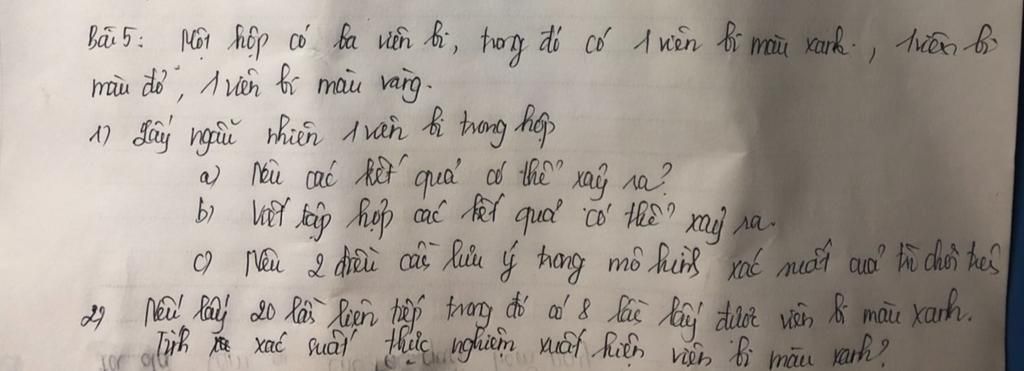 Bài 5: Một hộp có ba viên bi, trong đó có 1 viên bi màu xanh, 1 viên bi
màu đỏ, 1 viên bi màu vàng.
1) Lấy ngẫu nhiên 1 viên bi trong hộp
a) Nêu các kết quả có thể xảy ra?
b) Viết tập hợp các kết quả có thể xảy ra.
c) Nêu 2 điều cần lưu ý trong mô hình xác suất của trò chơi trên
2) Nếu lấy 20 lần liên tiếp trong đó có 8 lần lấy được viên bi màu xanh.
Tính xác suất thực nghiệm xuất hiện viên bi màu xanh?